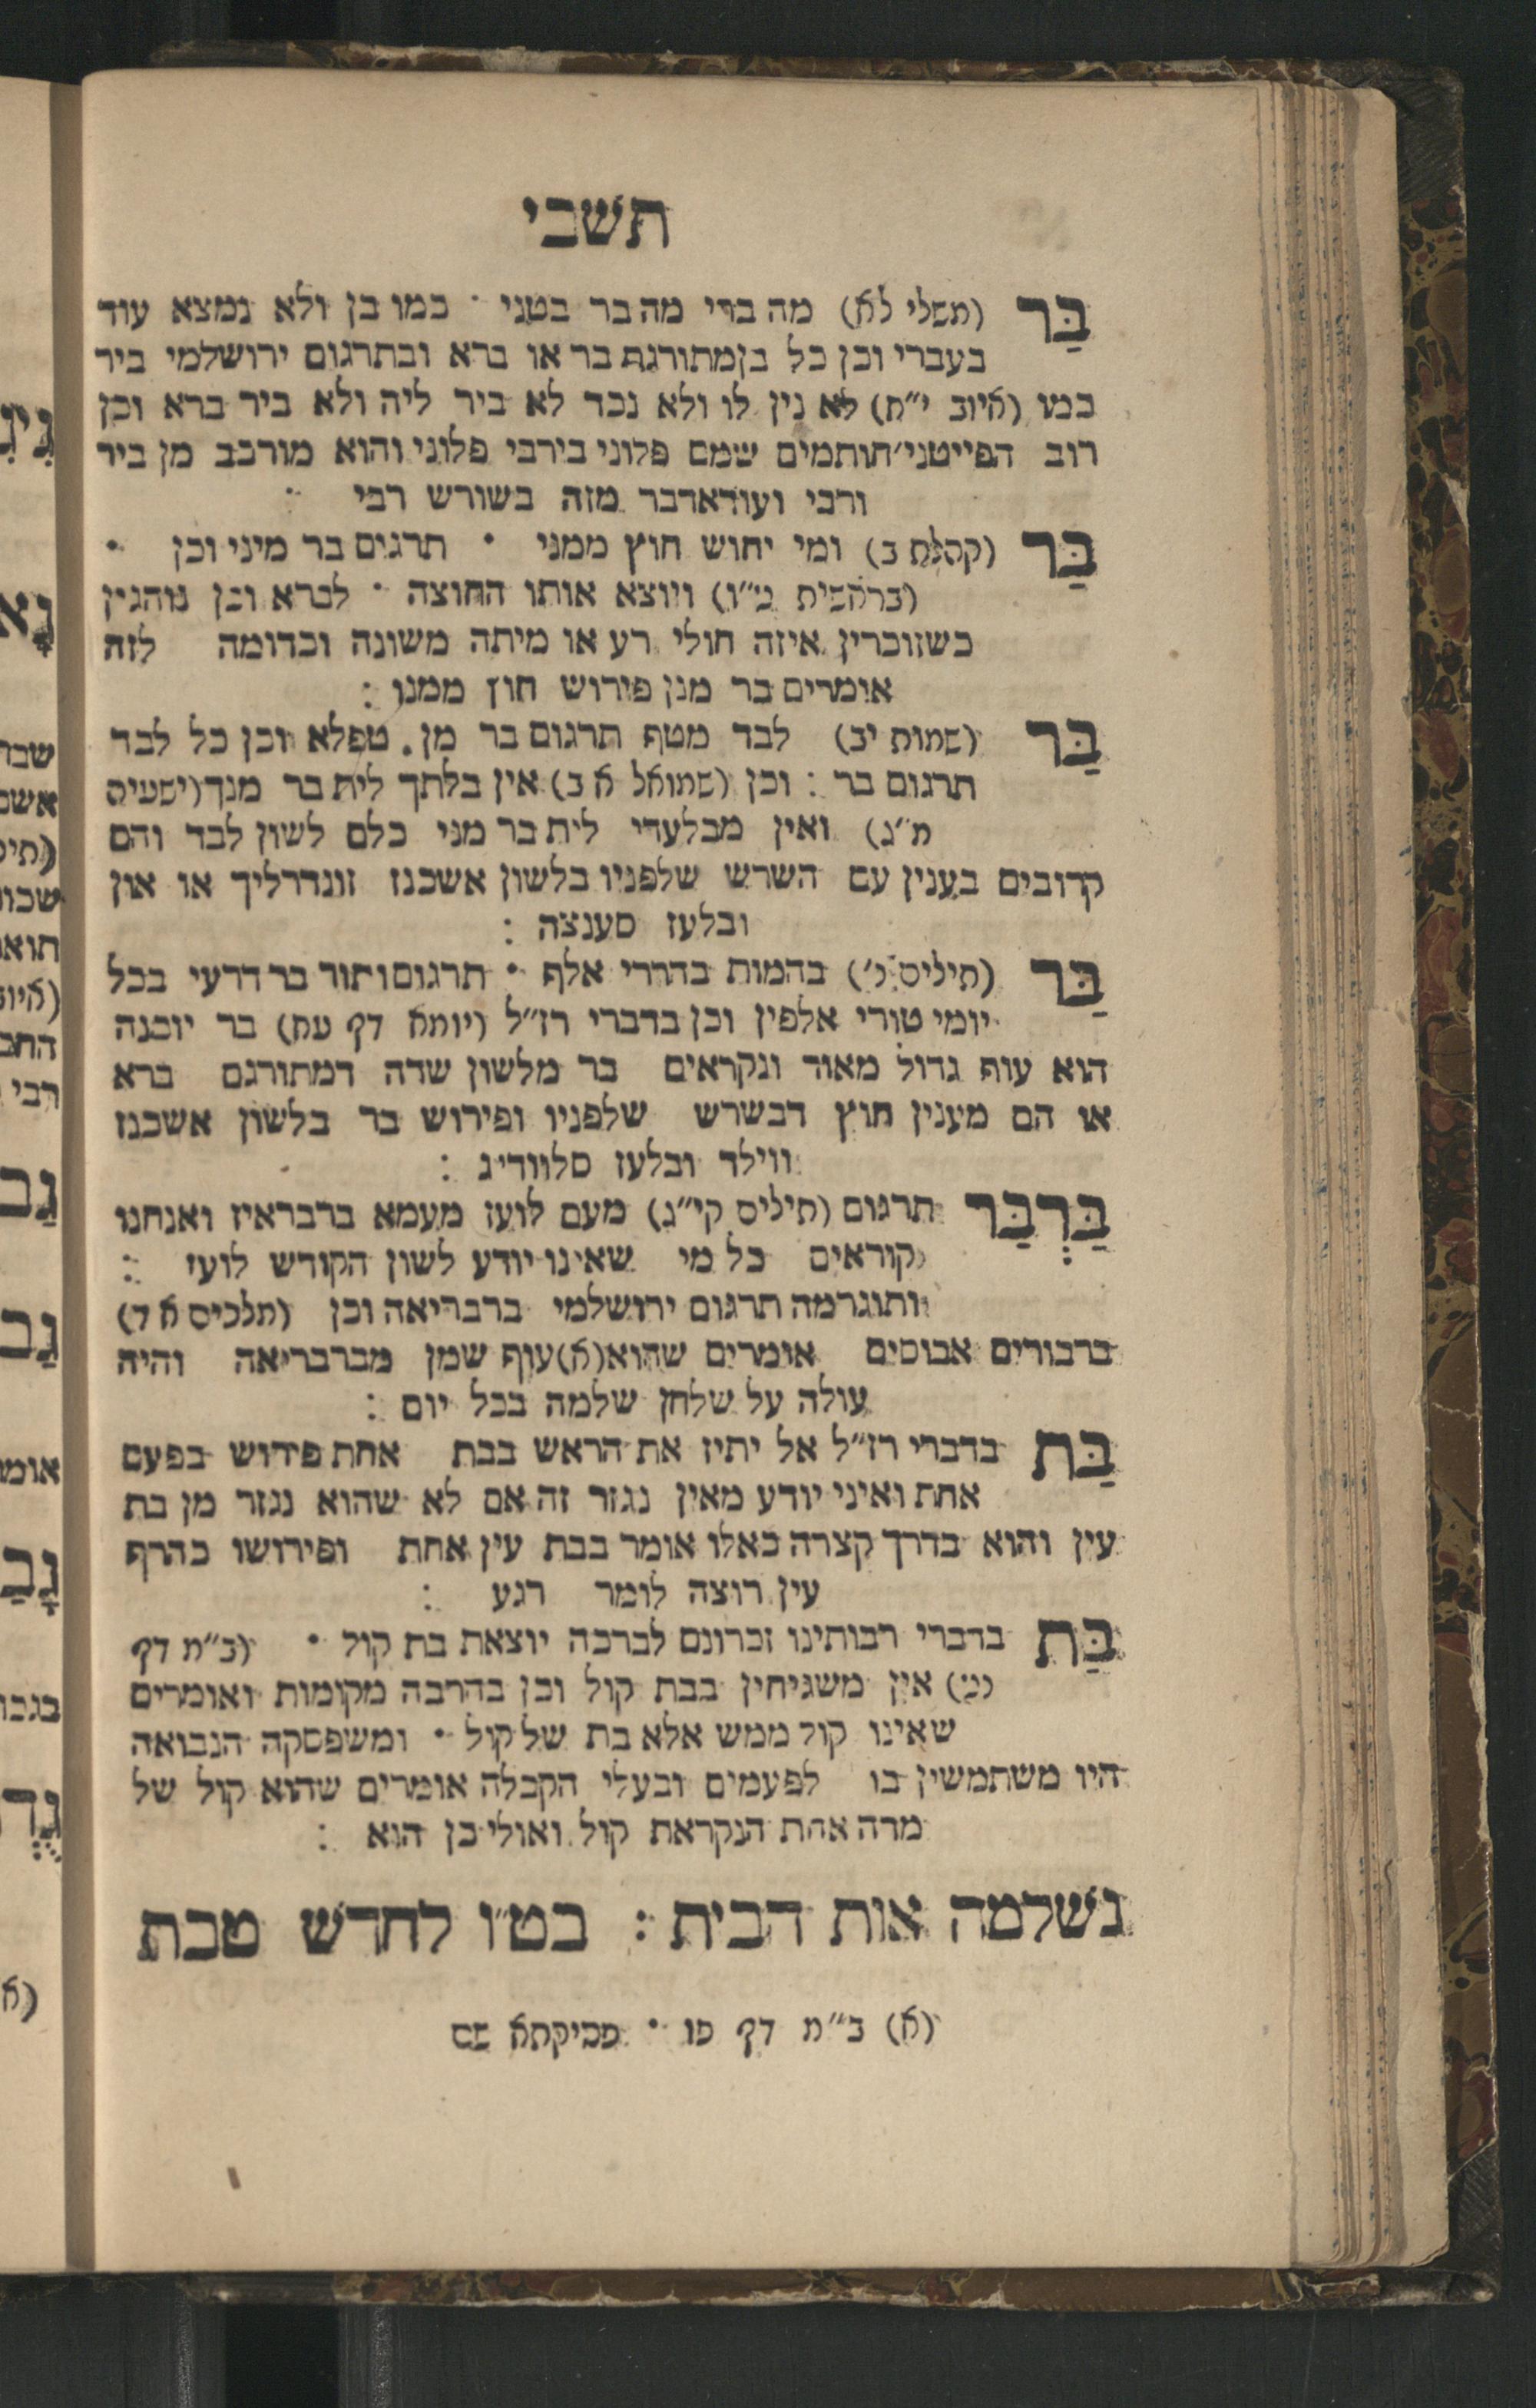 תשבי
בַּר (משלי לא) מה ברי מה בר בטני · כמו בן ולא נמצא עוד
בעברי וכן כל בן מתורגם בר או ברא ובתרגום ירושלמי ביר
כמו (איוב י״ח) לא נין לו ולא נכד לא ביר ליה ולא ביר ברא וכן
רוב הפייטני׳ חותמים שמם פלוני בירבי פלוני והוא מורכב מן ביר
ורבי ועוד אדבר מזה בשורש רבי :
בַּר (קהלת ב) ומי יחוש חוץ ממני · תרגום בר מיני וכן ·
(בראשית ט״ו) ויוצא אותו החוצה · לברא וכן נוהגין
כשזוכרין איזה חולי רע או מיתה משונה וכדומה לזה
אומרים בר מנן פירוש חוץ ממנו :
בַּר (שמות יב) לבד מטף תרגום בר מן . טפלא וכן כל לבד
תרגום בר : וכן (שמואל א ב) אין בלתך לית בר מנך (ישעיה
מ״ג) ואין מבלעדי לית בר מני כלם לשון לבד והם
קרובים בענין עם השרש שלפניו בלשון אשכנז זונדרליך או און
ובלעז סענצה :
בַּר (תיליס נ׳) בהמות בהררי אלף · תרגום ותור בר דרעי בכל
יומי טורי אלפין וכן בדברי רז״ל (יומא דף עח) בר יוכנה
הוא עוף גדול מאוד ונקראים בר מלשון שדה דמתורגם ברא
או הם מענין חוץ דבשרש שלפניו ופירוש בר בלשון אשכנז
ווילד ובלעז סלוודיג :
בַּרְבַּר תרגום (תיליס קי״ג) מעם לועז מעמא ברבראיז ואנחנו
קוראים כל מי שאינו יודע לשון הקודש לועז :
ותוגרמה תרגום ירושלמי ברבריאה וכן (מלכים א ד)
ברבורים אבוסים אומרים שהוא (א) עוף שמן מברבריאה והיה
עולה על שלחן שלמה בכל יום :
בַּת בדברי רז״ל אל יתיז את הראש בבת אחת פירוש בפעם
אחת ואיני יודע מאין נגזר זה אם לא שהוא נגזר מן בת
עין והוא בדרך קצרה כאלו אומר בבת עין אחת ופירושו כהרף
עין רוצה לומר רגע :
בַּת בדברי רבותינו זכרונם לברכה יוצאת בת קול · (ב״מ דף
נט) אין משגיחין בבת קול וכן בהרבה מקומות ואומרים
שאינו קול ממש אלא בת של קול · ומשפסקה הנבואה
היו משתמשין בו לפעמים ובעלי הקבלה אומרים שהוא קול של
מרה אחת הנקראת קול ואולי כן הוא :
נשלמה אות הבית : בט״ו לחדש טבת
(א) ב״מ דף פו · פסיקתא שם